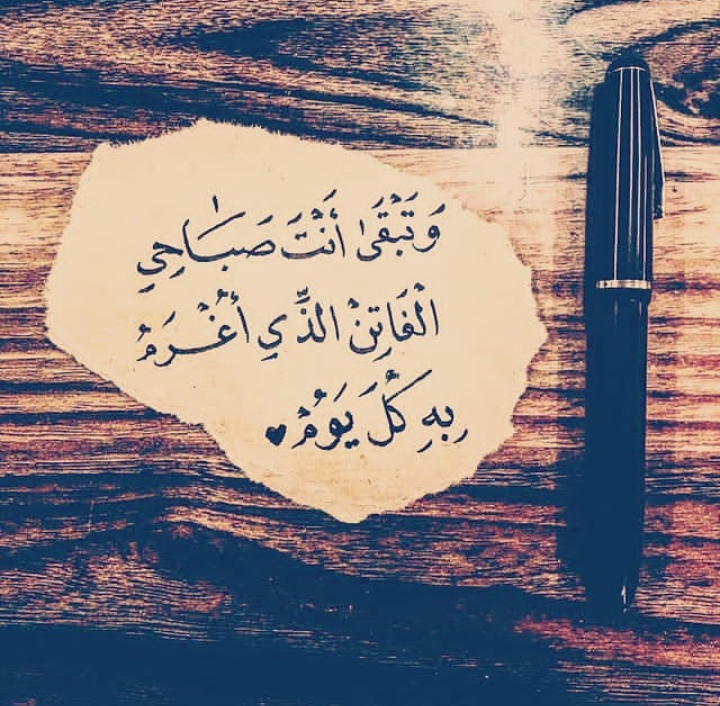 وَتَبْقَىٰ أَنْتَ صَبَاحِي
الْفَاتِنْ الذِّي أُغْرَمُ
بِهِ كُلَ يَوُمْ♥